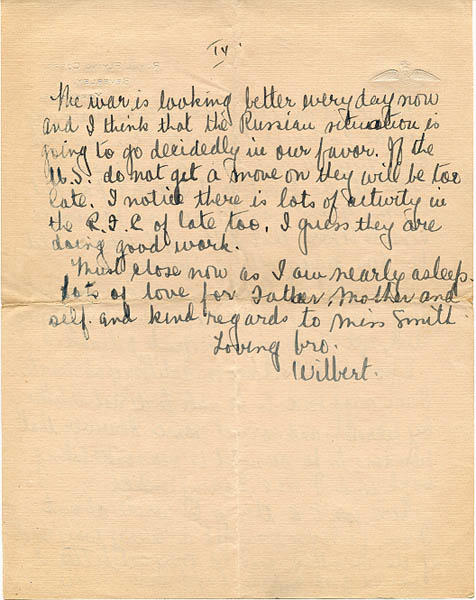 IV.
The war is looking better every day now
and I think that the Russian situation is
going to go decidedly in our favor. If the
U.S. do not get a move on they will be too
late. I notice there is lots of activity in
the R.F.C of late too. I guess they are
doing good work.
Must close now as I am nearly asleep.
Lots of love for Father, Mother and
self. and kind regards to Miss Smith
Loving bro.
Wilbert.